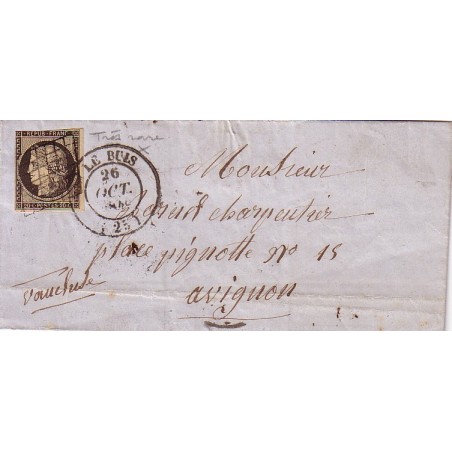 REPUB. FRANC
20 C. POSTES 20 C.
Très rare
x
LE BUIS
26
OCT.
(25)
Monsieur
charpentier
place pignotte n° 15
avignon
Vaucluse